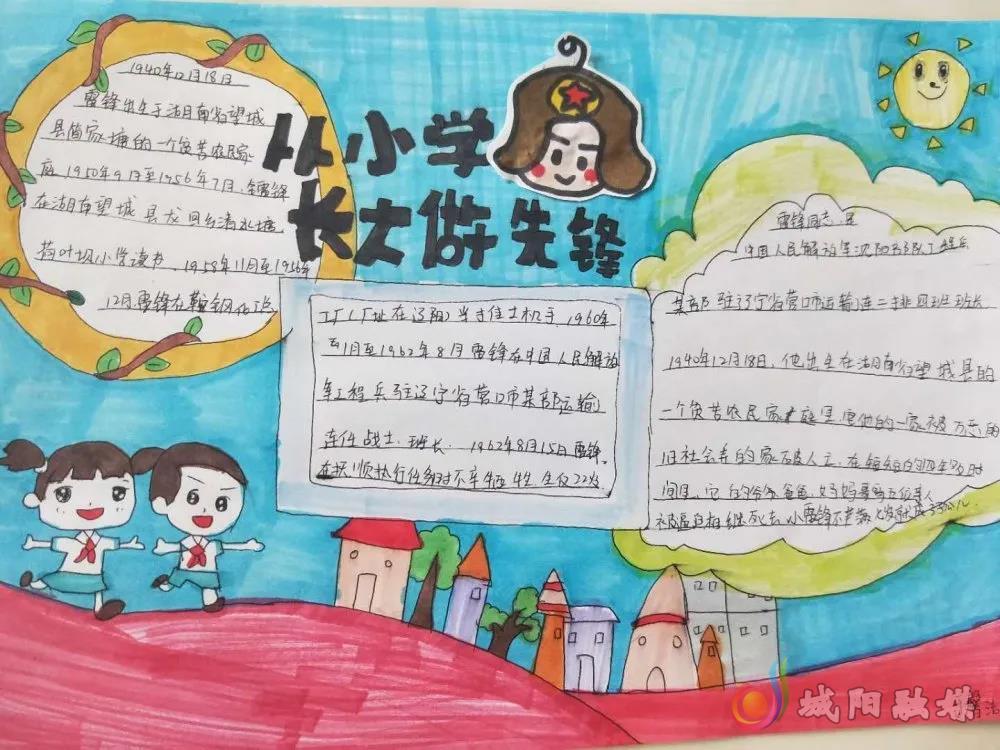 从小学
长大做先锋
1940年12月18日
雷锋出生于湖南省望城
县简家塘的一个贫苦农民家
庭 1950年9月至1956年7月,雷锋
在湖南望城县龙回乡清水塘
荷叶坝小学读书、1958年11月至1956年
12月雷锋在鞍钢化工总
工厂(厂址在辽阳)当了任土机手、1960年
至1月至1962年8月雷锋在中国人民解放
军工程兵驻辽宁省营口市某部运输
连任战士、班长、1962年8月15日雷锋
在抚顺执行任务时不幸牺牲 年仅22岁
雷锋同志是
中国人民解放军沈阳部队工程兵
某部驻辽宁省营口市运输连二排四班班长
1940年12月18日,他出生在湖南省望城县的
一个贫苦农民家庭里 他的一家被万恶的
旧社会弄的家破人亡,在短短的四年多时
间里,它的爷爷爸爸,妈妈哥哥五位亲人
相继死去 小雷锋不差
城阳融媒